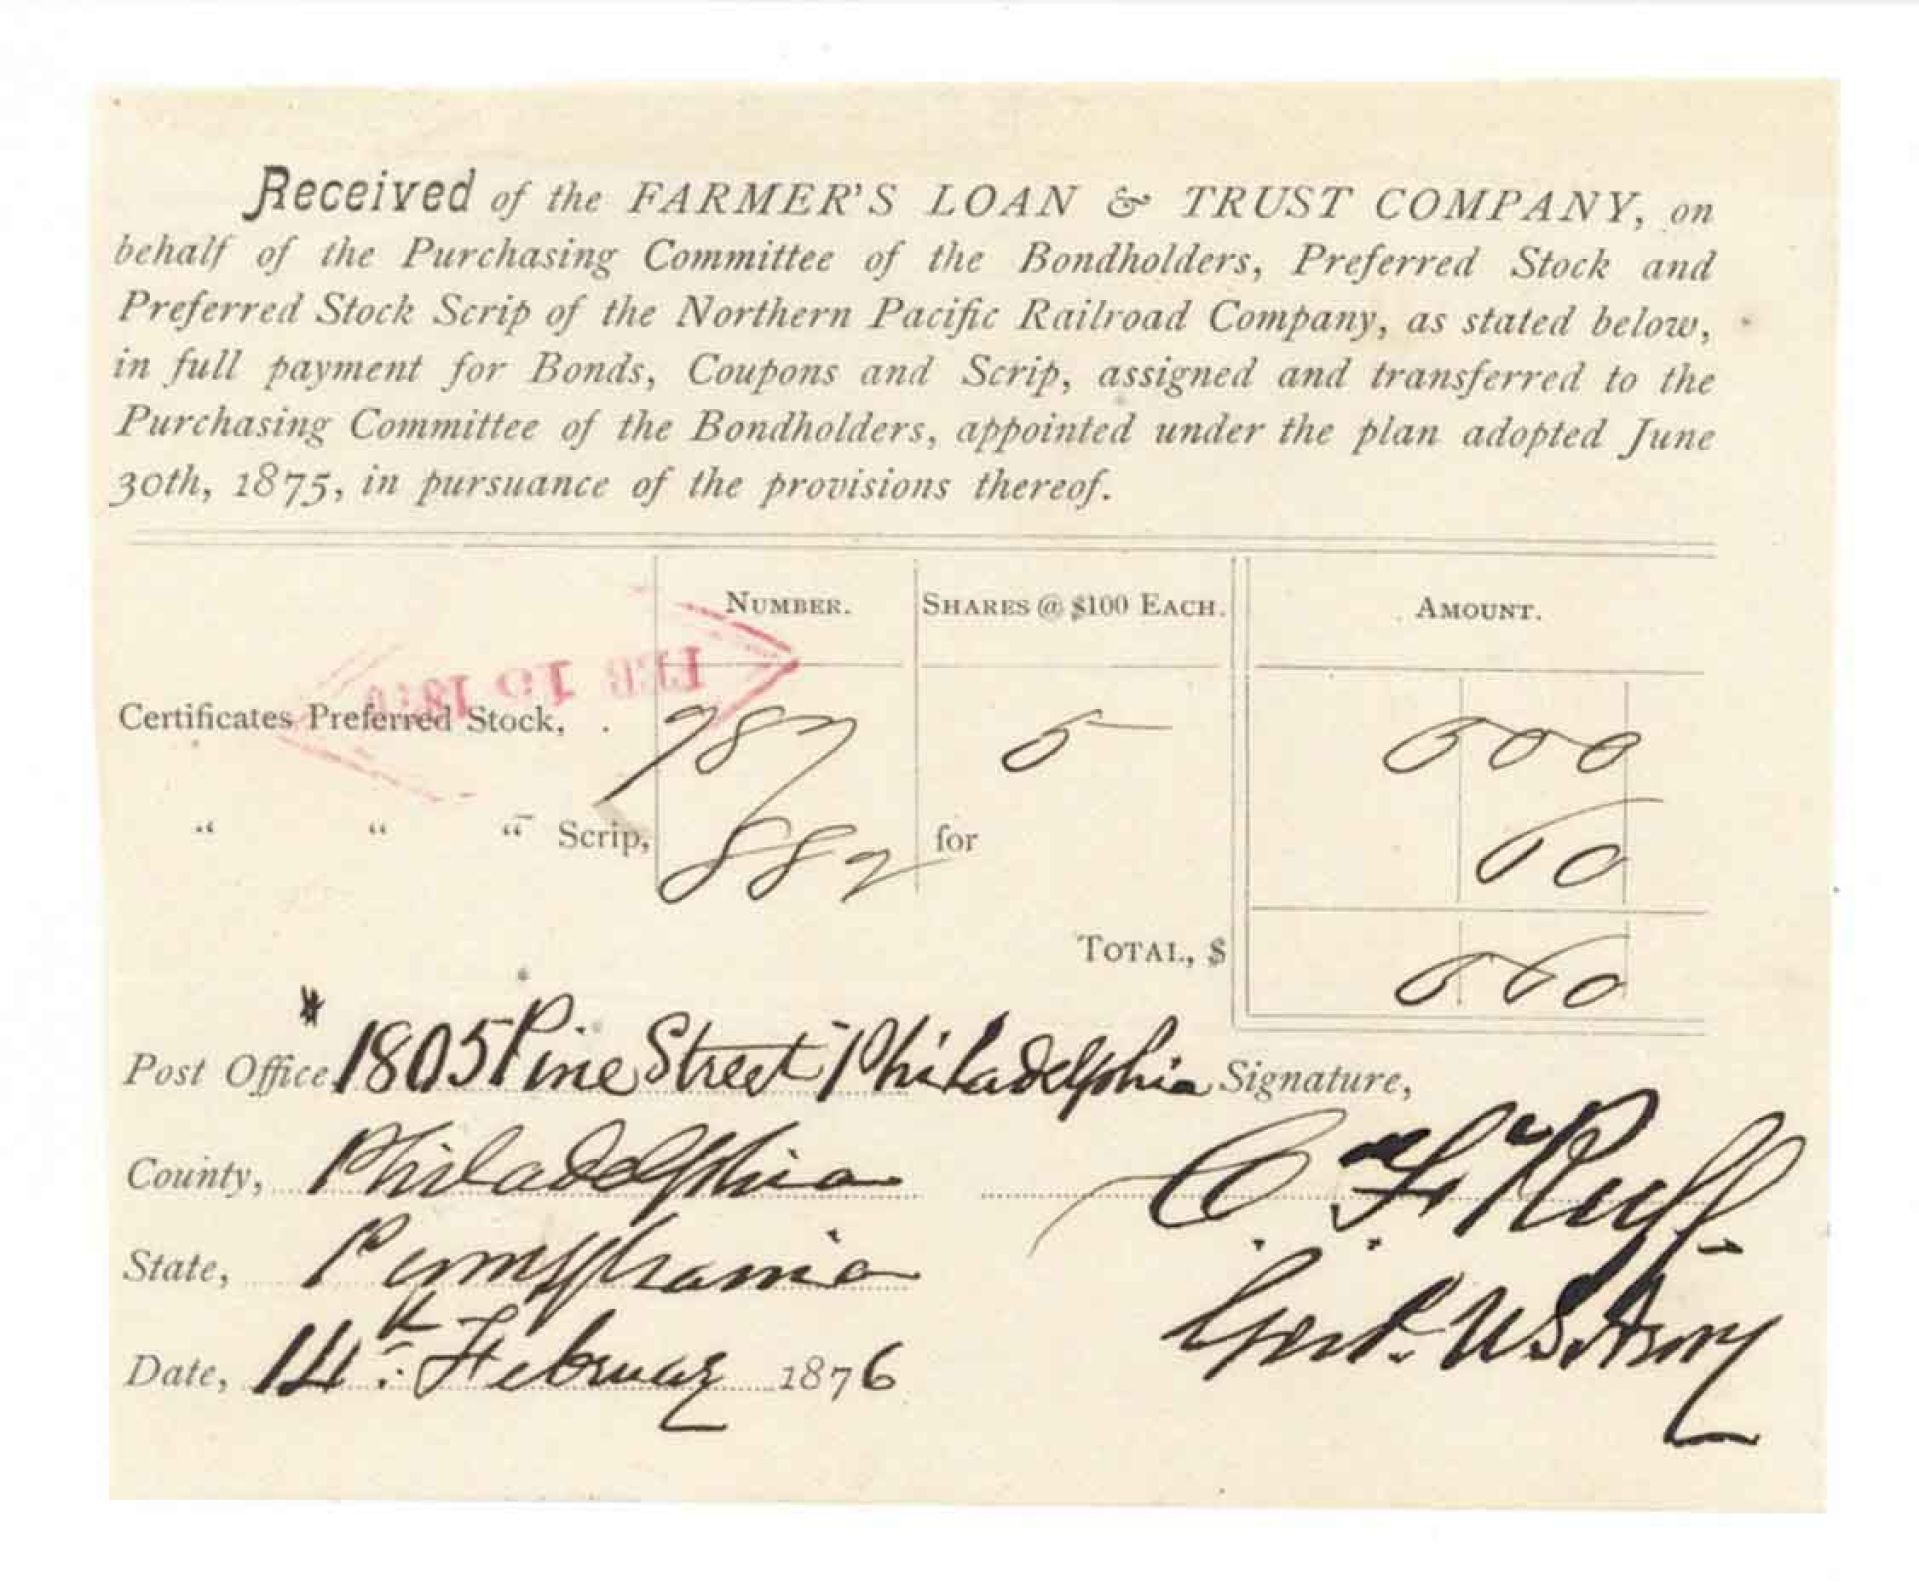 Received of the FARMER'S LOAN & TRUST COMPANY, on
behalf of the Purchasing Committee of the Bondholders, Preferred Stock and
Preferred Stock Scrip of the Northern Pacific Railroad Company, as stated below,
in full payment for Bonds, Coupons and Scrip, assigned and transferred to the
Purchasing Committee of the Bondholders, appointed under the plan adopted June
30th, 1875, in pursuance of the provisions thereof.
NUMBER. SHARES @ $100 EACH. AMOUNT.
FEB 15 1876
Certificates Preferred Stock, . 787 5 500
" " " Scrip, 882 for 60
TOTAL, $ 560
Post Office 1805 Pine Street Philadelphia Signature,
County, Philadelphia C. F. Ruff
State, Pennsylvania
Date, 14th February 1876 U S Army